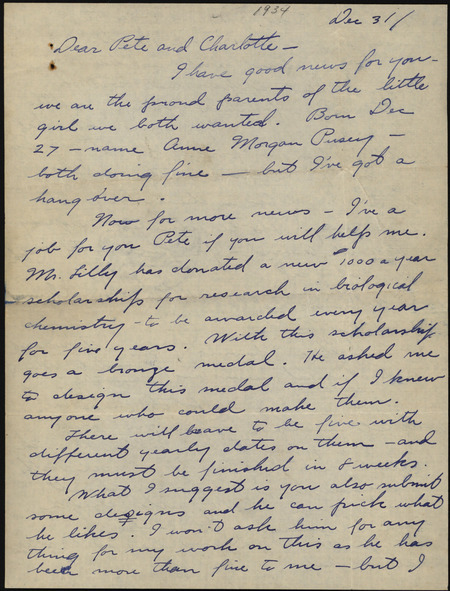 1934
Dec 31/
Dear Pete and Charlotte —
I have good news for you -
we are the proud parents of the little
girl we both wanted. Born Dec
27 — name Anne Morgan Pusey —
both doing fine — but I've got a
hang over.
Now for more news — I've a
job for you Pete if you will help me.
Mr. Lilly has donated a new $1000 a year
scholarship for research in biological
chemistry - to be awarded every year
for five years. With this scholarship
goes a bronze medal. He asked me
to design this medal and if I knew
anyone who could make them.
There will have to be five with
different yearly dates on them — and
they must be finished in 8 weeks.
What I suggest is you also submit
some designs and he can pick what
he likes. I won't ask him for any
thing for my work on this as he has
been more than fine to me — but I